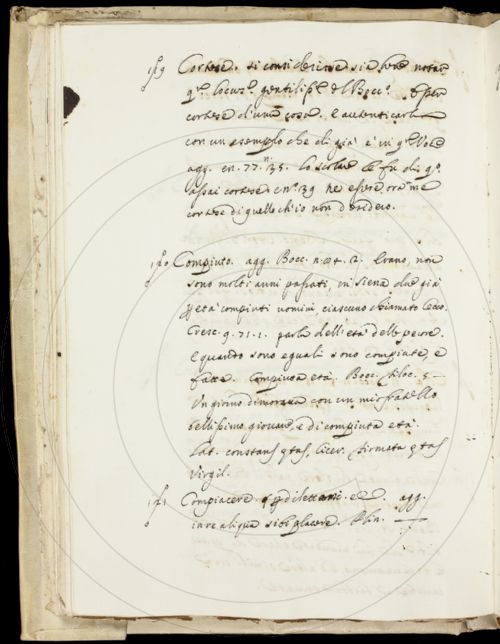 Cortese. si consideri se sia bene notar
q.ª locuz.e gentiliss.ª del Bocc.
cortese d'una cosa. e autenticarla
con un esempio che di già è in q.ª Voce
agg. en. 77. n. 35. lo scolare le fu di q.º
assai cortese en. 39 ne essere ora me
cortese di quello ch'io non desidero.
Compiuto. agg. Bocc. n. 2. Erano, non
sono molti anni passati, in Siena due già
p età compiuti uomini ciascuno chiamato Cecco.
Cresc. 9. 71. 1. parla dell'età delle pecore.
e quando sono eguali sono compiute, e
fatte. Compiuta età. Bocc. filoc. 5
Un giorno dimorava con un mio fratello
bellissimo giovane, e di compiuta età.
Lat. constans ętas. Cicer. firmata ętas
Virgil.
Compiacere agg.
in re aliqua sibi placere. Plin.